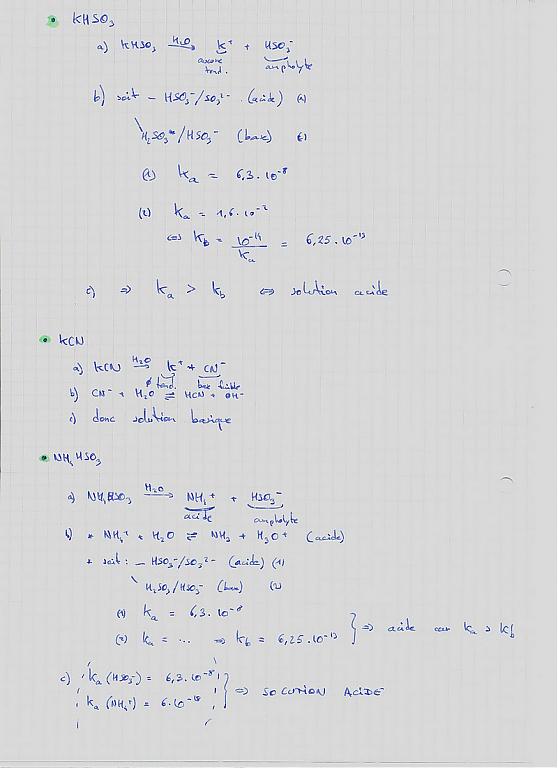 • KHSO₃
a) KHSO₃ —H₂O→ K⁺ + HSO₃⁻
aucune tend. ampholyte
b) soit – HSO₃⁻/SO₃²⁻ (acide) (1)
\ H₂SO₃/HSO₃⁻ (base) (2)
(1) Ka = 6,3 . 10⁻⁸
(2) Ka = 1,6 . 10⁻²
⇔ Kb = 10⁻¹⁴/Ka = 6,25 . 10⁻¹³
c) ⇒ Ka > Kb ⇔ solution acide
• KCN
a) KCN —H₂O→ K⁺ + CN⁻
∅ tend. base faible
b) CN⁻ + H₂O ⇌ HCN + OH⁻
c) donc solution basique
• NH₄HSO₃
a) NH₄HSO₃ —H₂O→ NH₄⁺ + HSO₃⁻
acide ampholyte
b) * NH₄⁺ + H₂O ⇌ NH₃ + H₃O⁺ (acide)
* soit : – HSO₃⁻/SO₃²⁻ (acide) (1)
\ H₂SO₃/HSO₃⁻ (base) (2)
(1) Ka = 6,3 . 10⁻⁸
(2) Ka = ... ⇒ Kb = 6,25 . 10⁻¹³ } ⇒ acide car Ka > Kb
c) Ka (HSO₃⁻) = 6,3 . 10⁻⁸
Ka (NH₄⁺) = 6 . 10⁻¹⁰ } ⇒ SOLUTION ACIDE